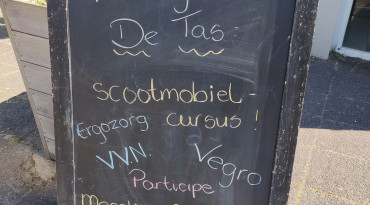 De Tas:
Scootmobiel-
Ergozorg cursus!
VVN. Vegro
Participe